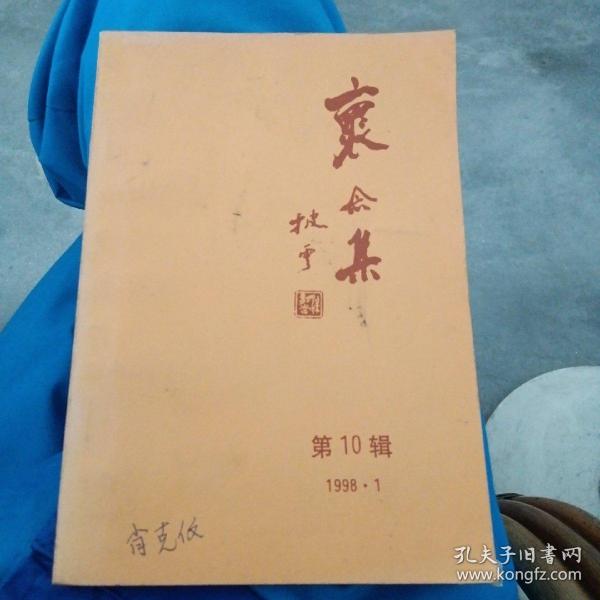 集
披雲
第10辑
1998·1
肖克
孔夫子旧书网
www.kongfz.com